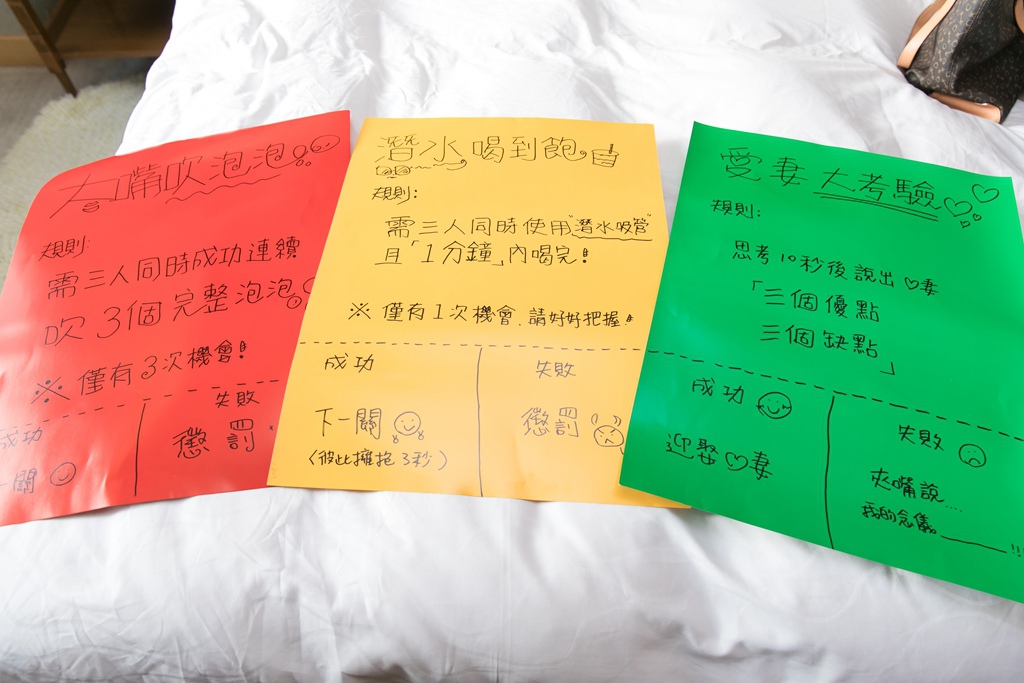 大嘴吹泡泡
規則:
需三人同時成功連續
吹3個完整泡泡
※僅有3次機會!
成功
一關
失敗
懲罰
潛水喝到飽
規則:
需三人同時使用"潛水吸管"
且「1分鐘」內喝完!
※僅有1次機會、請好好把握!
成功
下一關
(彼此擁抱3秒)
失敗
懲罰
愛妻大考驗
規則:
思考10秒後說出♡妻
「三個優點
三個缺點」
成功
迎娶♡妻
失敗
夾嘴說....
我的念儀______!!!